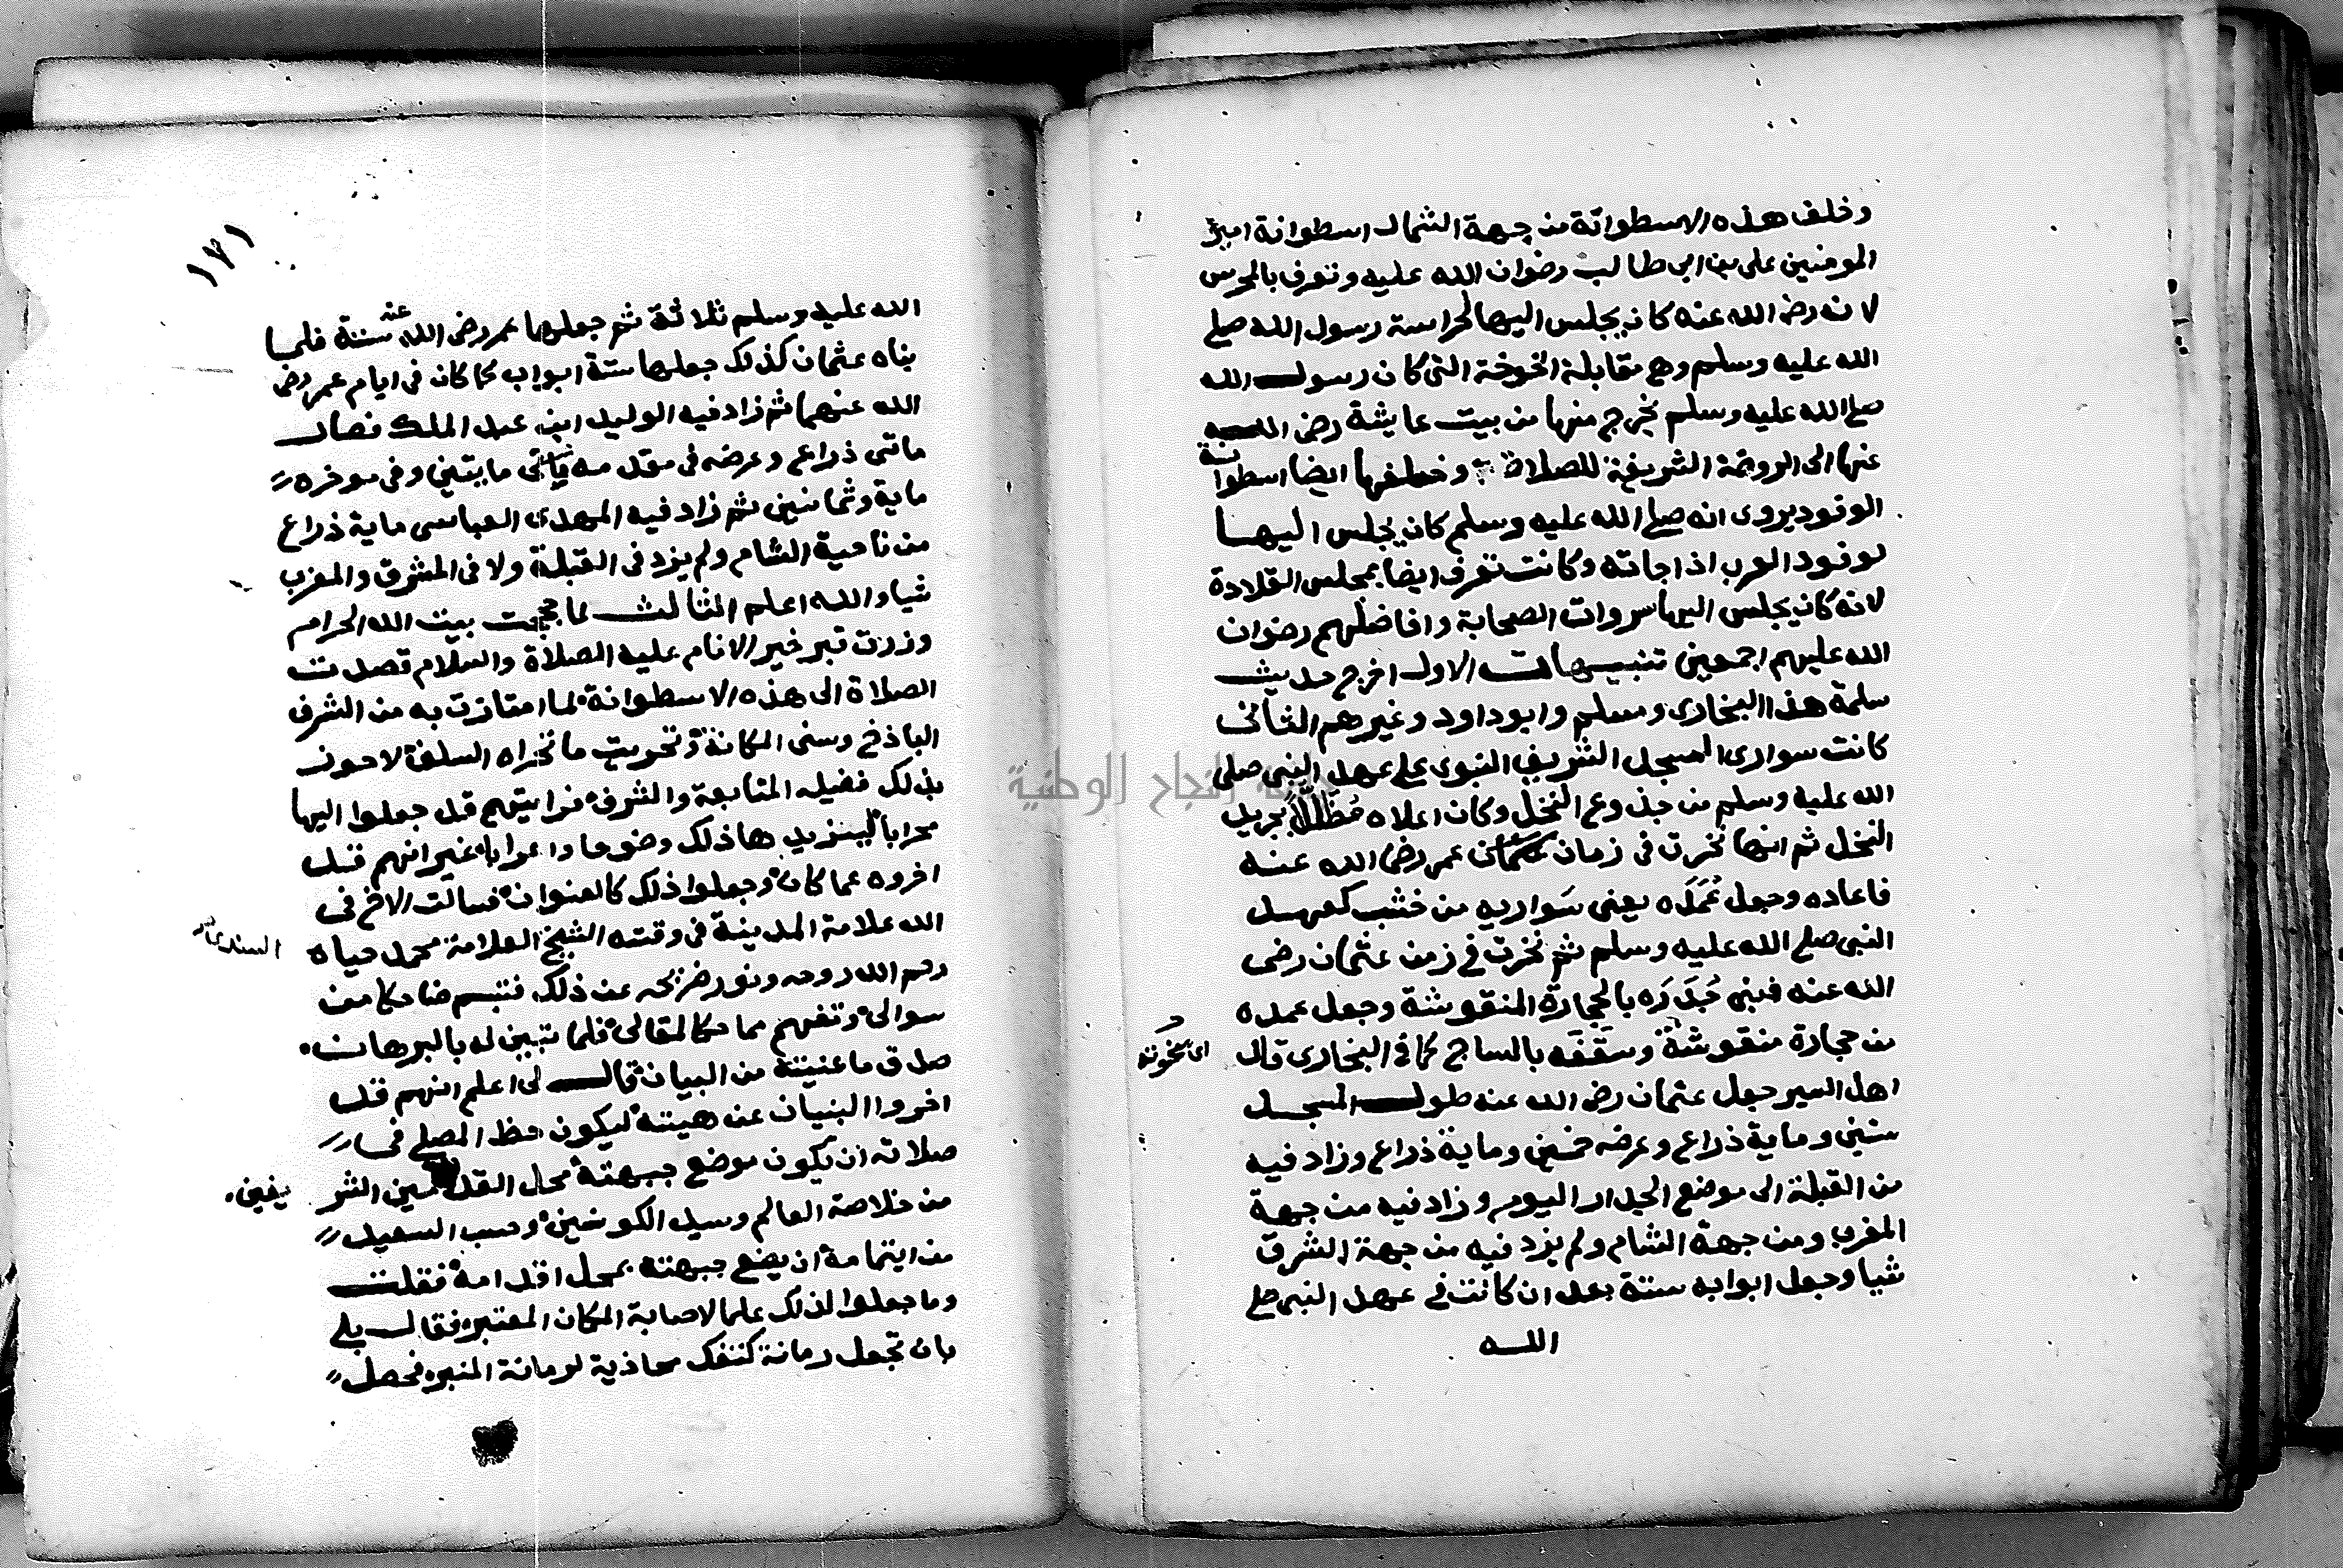 وخلف هذه الاسطوانة من جهة الشمال اسطوانة امير
المومنين على بن ابى طالب رضوان الله عليه وتعرف بالمحرس
لانه رضى الله عنه كان يجلس اليها لحراسة رسول الله صلى
الله عليه وسلم وهى مقابلة الخوخة التى كان رسول الله
صلى الله عليه وسلم يخرج منها من بيت عايشة رضى الله
عنها الى الروضة الشريفة للصلاة وخلفها ايضا اسطوانة
الوفود يروى انه صلى الله عليه وسلم كان يجلس اليها
لوفود العرب اذا جاته وكانت تعرف ايضا بمجلس القلادة
لانه كان يجلس اليها سروات الصحابة وافاضلهم رضوان
الله عليهم اجمعين تنبيهات الاول اخرج حديث
سلمة هذا البخارى ومسلم وابو داود وغيرهم الثانى
كانت سوارى المسجد الشريف النبوى على عهد النبى صلى
الله عليه وسلم من جذوع النخل وكان اعلاه مُظَلَّلًا بجريد
النخل ثم انها نخرت فى زمان عمر رضى الله عنه
فاعاده وجعل عُمَدَه يعنى سَواريه من خشب كعهد
النبى صلى الله عليه وسلم ثم نخرت فى زمن عثمان رضى
الله عنه فبنى جُدَرَه بالحجارة المنقوشة وجعل عمده
من حجارة منقوشة وسَقَفَه بالساج كما فى البخارى قال
اهل السير جعل عثمان رضى الله عنه طول المسجد
ستين وماية ذراع وعرضه خمسين وماية ذراع وزاد فيه
من القبلة الى موضع الجدار اليوم وزاد فيه من جهة
المغرب ومن جهة الشام ولم يزد فيه من جهة الشرق
شيا وجعل ابوابه ستة بعد ان كانت فى عهد النبى صلى
الله
١٧١
الله عليه وسلم ثلاثة ثم جعلها عمر رضى الله عنه ستة فلما
بناه عثمان كذلك جعلها ستة ابواب كما كان فى ايام عمر رضى
الله عنهما ثم زاد فيه الوليد ابن عبد الملك فصار
مائتى ذراع وعرضه فى مقدمه مايتين وفى موخره
ماية وثمانين ثم زاد فيه المهدى العباسى ماية ذراع
من ناحية الشام ولم يزد فى القبلة ولا فى المشرق والمغرب
شيا والله اعلم الثالث لما حججت بيت الله الحرام
وزرت قبر خير الانام عليه الصلاة والسلام قصدت
الصلاة الى هذه الاسطوانة لما امتازت به من الشرف
الباذخ وسنى المكانة وتحريت ما تحراه السلف لاحوز
بذلك فضيلة المتابعة والشرف فرايتهم قد جعلوا اليها
محرابا ليزيدها ذلك وضوحا واعرابا غير انهم قد
اخروه عما كان وجعلوا ذلك كالعنوان فسالت الاخ فى
الله علامة المدينة فى وقته الشيخ العلامة محمد حياه
السندى
رحم الله روحه ونور ضريحه عن ذلك فتبسم ضاحكا من
سوالى وتفهم مقالى فلما تبين له بالبرهان
صدق ما عنيته من البيان قال لى اعلم انهم قد
اخروا البنيان عن هيئته ليكون حظ المصلى فى
صلاته ان يكون موضع جبهته محل القدمين الشريفين
من خلاصة العالم وسيد الكونين وحسب السعيد
من ايتمامه ان يضع جبهته بمحل اقدامه فقلت
وما جعلوا لذلك علما لاصابة المكان المعتبر فقال بلى
بان تجعل رمانة كتفك محاذية لرمانة المنبر فحصل